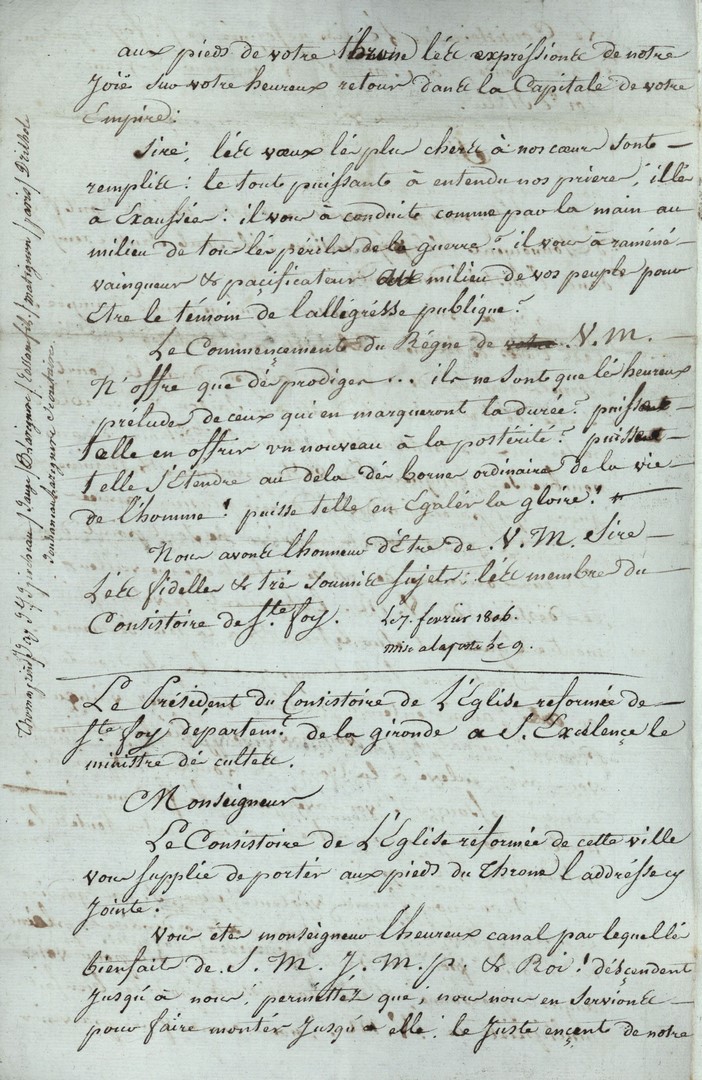 aux pieds de votre throne léte expréssionte de notre
Joië sur votre heureux retour dante la Capitale de votre
Empire:
Sire, léte vœux lés plus cherte à nos cœur sont
remplite: le tout puissante à entendu nos priere, illés
à Exaussées: il vous à conduite comme par la main au
milieu de tous lés périls de la guerre? il vous à raméné
vainqueur & pacificateur au milieu de vos peuples pour
Etre le témoin de l'allégrésse publique?
Le Commençemente du Régne de V. M.
N'offre que dés prodiges... ils ne sont que lés heureux
prélude de ceux qui en marqueront la durée? puisse
telle en offrir un nouveau à la postérité? puisse
telle s'Etendre au dela dés bornes ordinaires de la vie
de l'homme! puisse telle en Egalér la gloire!
Nous avonte l'honneur d'Etre de V. M. Sire
Léte fidelles & trés soumite sujets; léte membres du
Consistoire de Ste foy. Le 7. fevrier 1806.
mise a la poste le 9.
Le Président du Consistoire de L'Eglise reformée de
Ste foy départemt de la gironde a S. Excelençe le
ministre dés cultete.
Monseigneur
Le Consistoire de L'Eglise réformée de cette ville
vous supplie de portér aux pieds du Throne l'addrésse cy
Jointe.
Vous étes monseigneur l'heureux canal par lequel lés
bienfait de S. M. J. M. p. & Roi! désçendent
Jusqu'à nous; permettéz que, nous nous en servionte
pour faire montér Jusqu'a elle le Juste ençent de notre